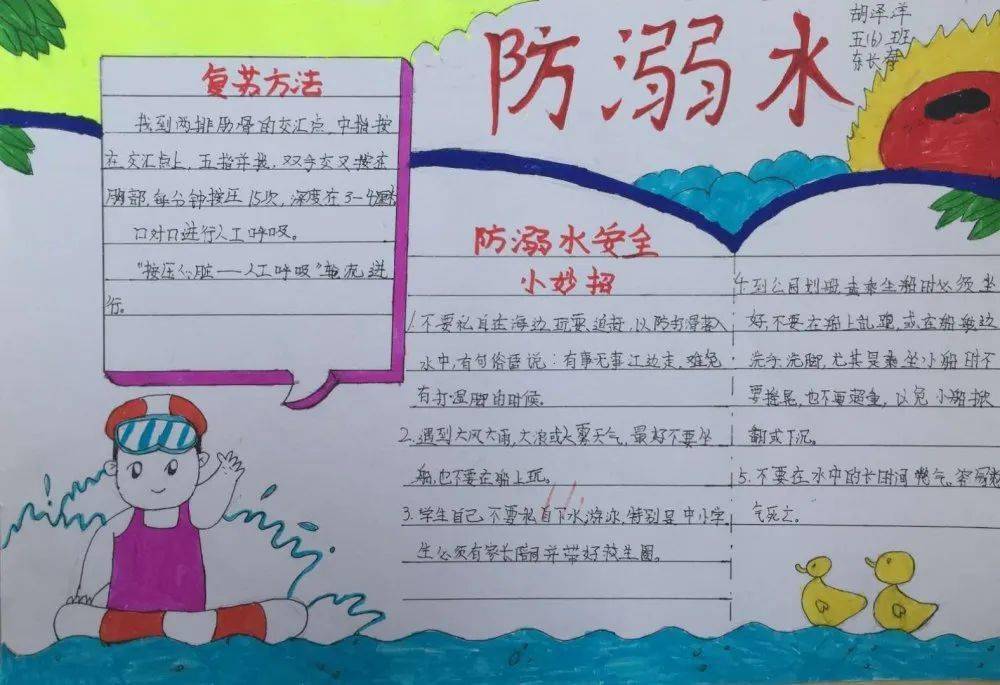 防溺水
胡泽洋
五(6)班
复苏方法
找到两排肋骨的交汇点,中指按
在交汇点上,五指并拢,双手交叉按在
胸部,每分钟按压15次,深度在3-4厘米
口对口进行人工呼吸。
"按压心脏——人工呼吸"轮流进
行。
防溺水安全
小妙招
1.不要私自在海边玩耍追赶,以防打滑落入
水中,有句俗话说:有事无事江边走,难免
有打湿脚的时候。
2.遇到大风大雨,大浪或大雾天气,最好不要坐
船,也不要在船上玩。
3.学生自己不要私自下水游泳,特别是中小学
生必须有家长陪同并带好救生圈。
到公园划船或乘坐船时必须坐
好,不要在船上乱跑,或在船边
洗手、洗脚,尤其是乘坐小船时不
要摇晃,也不要超重,以免小船掀
翻或下沉。
5.不要在水中的长时间憋气。容易
气死亡。